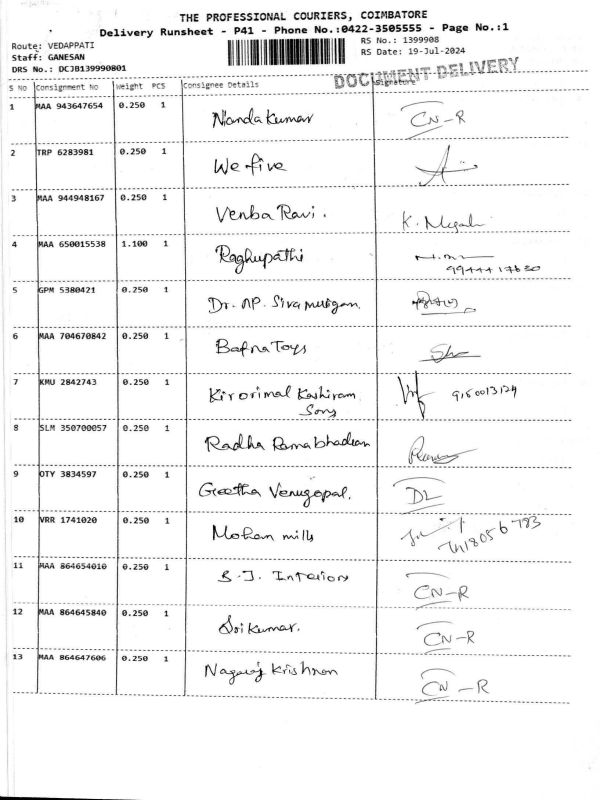 THE PROFESSIONAL COURIERS, COIMBATORE
Delivery Runsheet - P41 - Phone No.:0422-3505555 - Page No.:1
Route: VEDAPPATI RS No.: 1399908
Staff: GANESAN RS Date: 19-Jul-2024
DRS No.: DCJB139990801 DOCUMENT DELIVERY
S No Consignment No Weight PCS Consignee Details Signature
1 MAA 943647654 0.250 1 Nanda Kumar CN-R
2 TRP 6283981 0.250 1 We five
3 MAA 944948167 0.250 1 Venba Ravi.
4 MAA 650015538 1.100 1 Raghupathi
5 GPM 5380421 0.250 1 Dr. NP. Siva murugan
6 MAA 704670842 0.250 1 Bafna Toys
7 KMU 2842743 0.250 1 Kirorimal Kashiram
Sons
8 SLM 350700057 0.250 1 Radha Ramabhadran
9 OTY 3834597 0.250 1 Geetha Venugopal. DL
10 VRR 1741020 0.250 1 Mohan mills
11 MAA 864654010 0.250 1 B.J. Interiors CN-R
12 MAA 864645840 0.250 1 Sri Kumar. CN-R
13 MAA 864647606 0.250 1 Nagaraj Krishnan CN-R